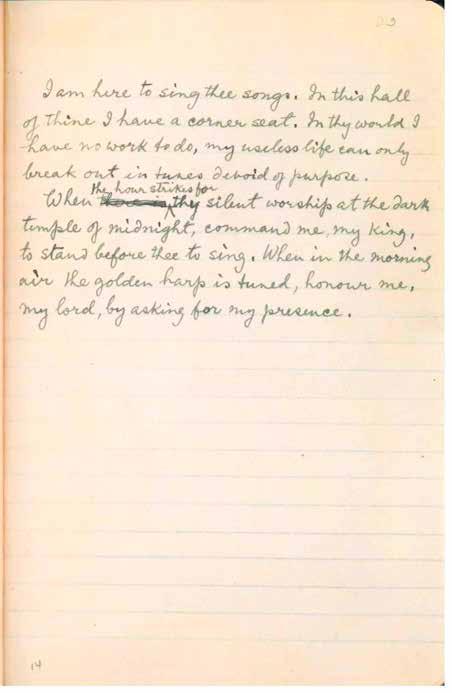 I am here to sing thee songs. In this hall
of thine I have a corner seat. In thy world I
have no work to do, my useless life can only
break out in tunes devoid of purpose.
the hour strikes for
When thy silent worship at the dark
temple of midnight, command me, my king,
to stand before thee to sing. When in the morning
air the golden harp is tuned, honour me,
my lord, by asking for my presence.
14